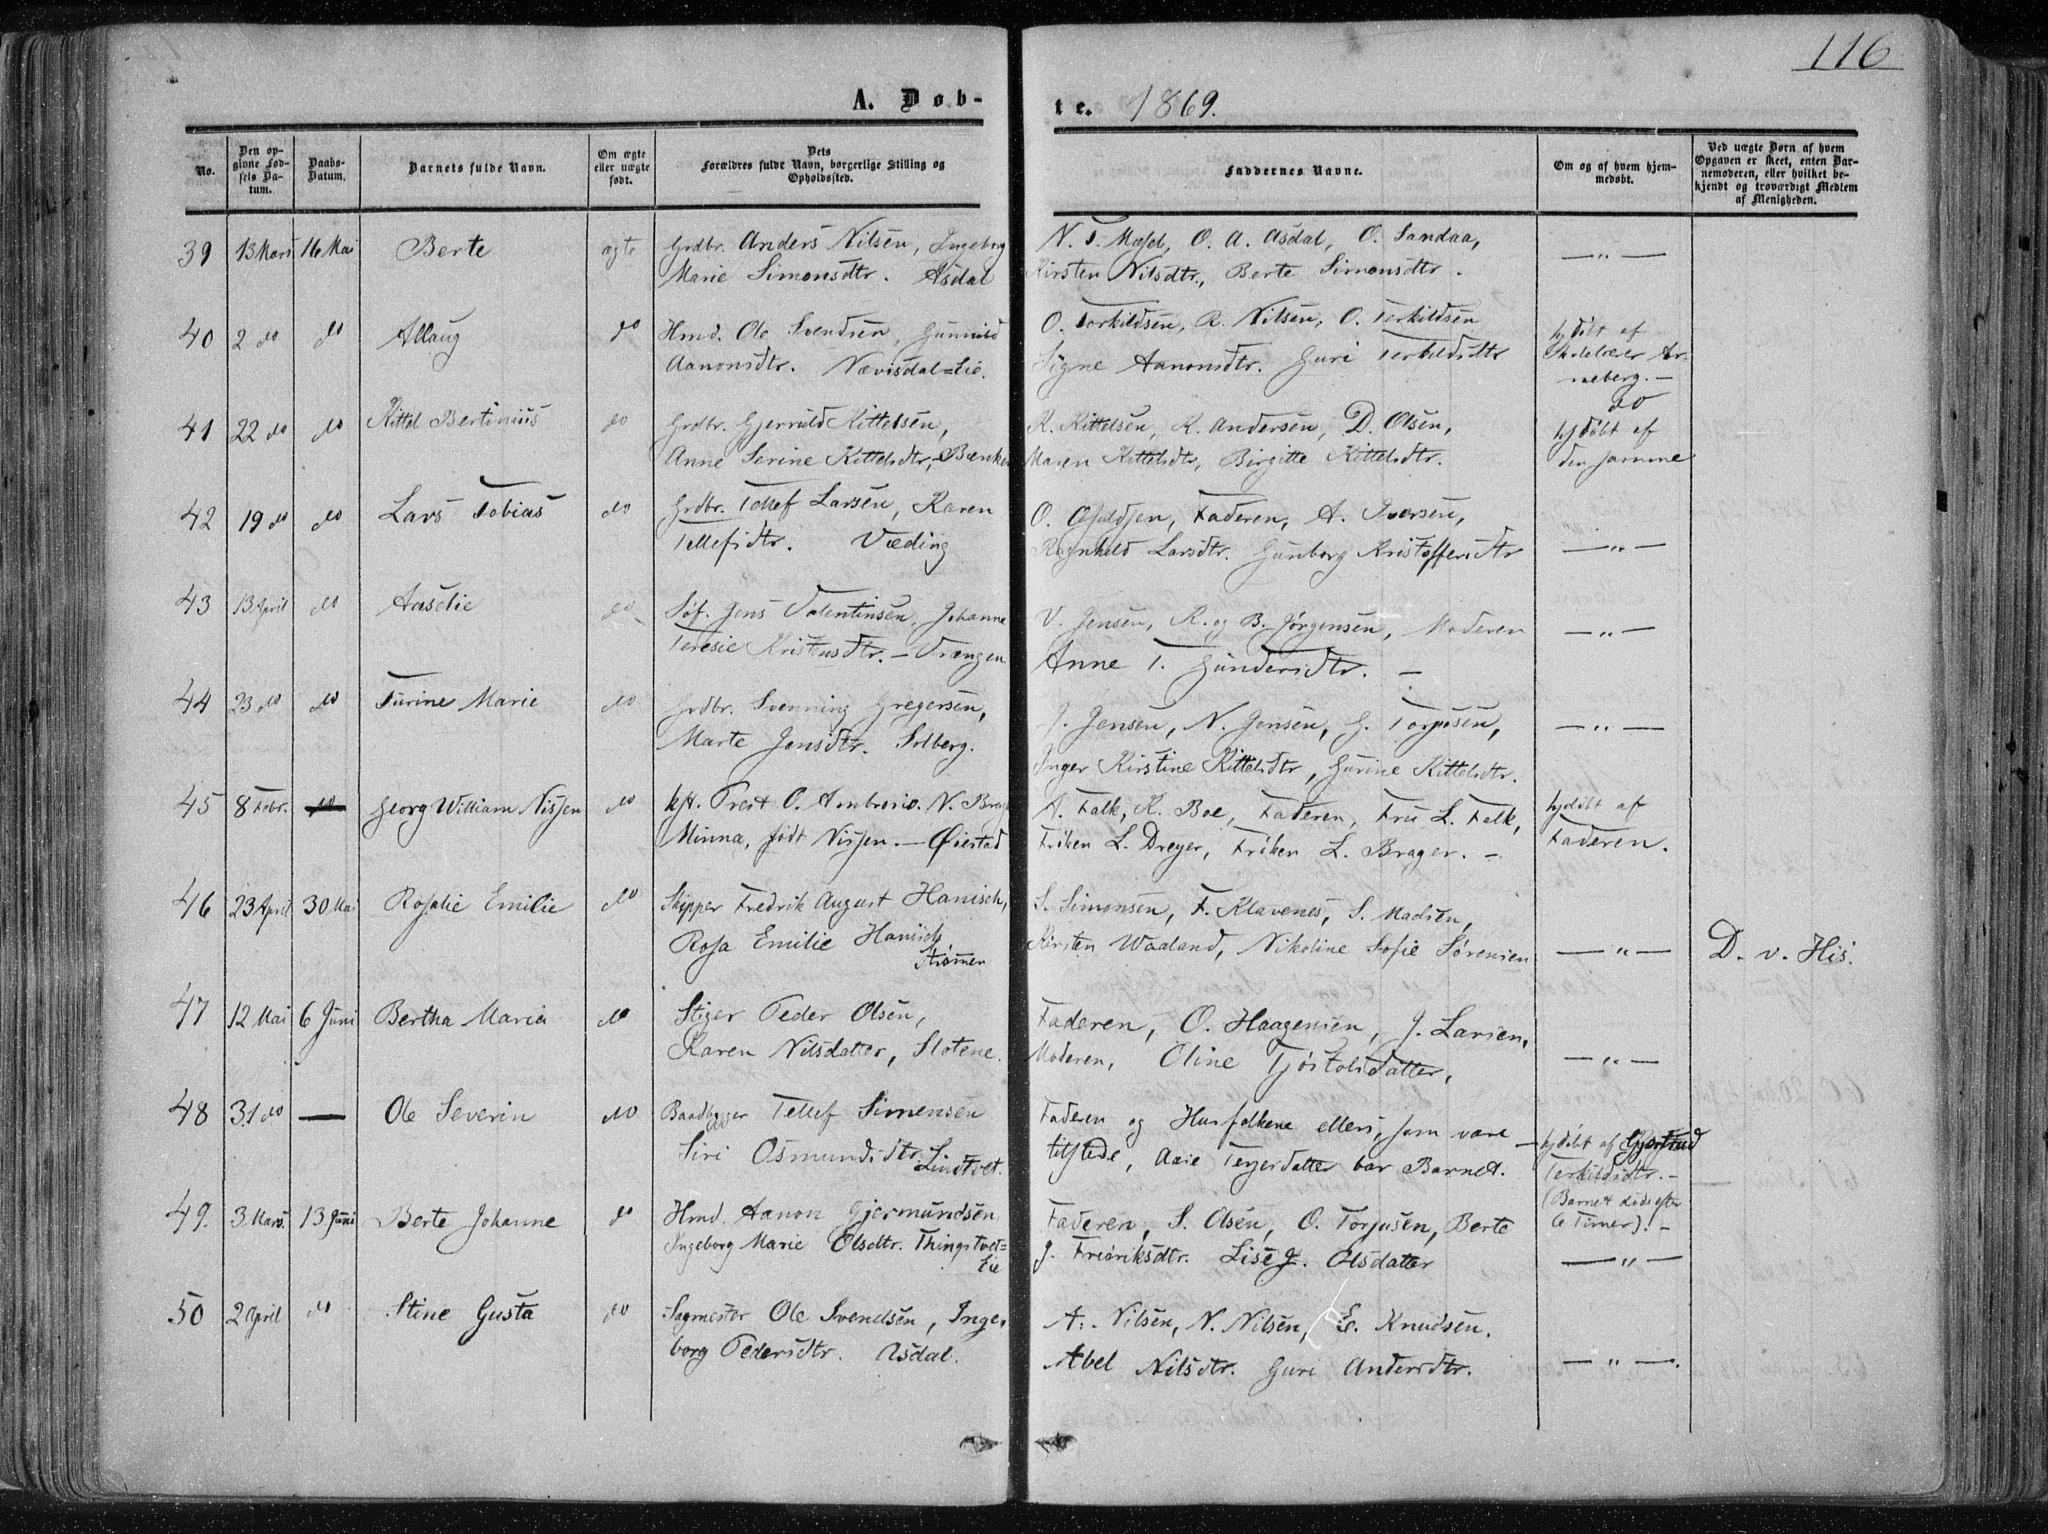 116
A. Døb-
te. 1869.
No.
Den op-
givne Fød-
sels Da-
tum.
Daabs-
Datum.
Barnets fulde Navn.
Om ægte
eller uægte
født.
Dets
Forældres fulde Navn, borgerlige Stilling og
Opholdssted.
Faddernes Navne.
Om og af hvem hjem-
medøbt.
Ved uægte Børn af hvem
Opgaven er skeet, enten Bar-
nemoderen, eller hvilket be-
kjendt og troværdigt Medlem
af Menigheden.
39 13 Mars 16 Mai Berte ægte Grdbr. Anders Nilsen, Ingeborg
Marie Simonsdtr. Asdal
O. A. Asdal, O. Sandaa,
Kirsten Nilsdtr., Berte Simonsdtr.
— " —
40 2 do do Allaug do Hmd. Ole Svendsen, Gunnild
Aanonsdtr. Nævisdal-Eie.
O. Torkildsen, R. Nilsen, O. Terkildsen
Signe Aanonsdtr. Guri Terkildsdtr
hjdøbt af
Skolelærer Ar-
neberg. —
41 22 do do Kittel Bertinius do Grdbr. Gjeruld Kittelsen,
Anne Serine Kittelsdtr,
K. Kittelsen, K. Andersen, D. Olsen,
Maren Kittelsdtr, Birgitte Kittelsdtr.
do
hjdøbt af
den samme
42 19 do do Lars Tobias do Grdbr. Tellef Larsen, Karen
Tellefsdtr. Væding
Faderen, A. Iversen,
Ragnhild Larsdtr. Gunborg Kristoffersdtr
— " —
43 13 April do Aaselie do Søf. Jens Valentinsen, Johanne
Teresie — Vrængen
V. Jensen, K. og B. Jørgensen, Moderen
Anne T. Gundersdtr. —
— " —
44 23 do do Turine Marie do Grdbr. Svenning Gregersen,
Marte Jensdtr. Solberg.
J. Jensen, N. Jensen, G. Torjusen,
Inger Kirstine Kittelsdtr, Gurine Kittelsdtr.
— " —
45 8 Febr. do Georg William Nissen do kst. Prest O. Ambrosio. N. Brag
Minna, født Nissen. — Øiestad
A. Falk, K. Boe, Faderen, Fru L. Falk,
Frøken L. Dreyer, Frøken L. Brager. —
hjdøbt af
Faderen.
46 23 April 30 Mai Rosalie Emilie do Skipper Fredrik August Hanisch,
Rosa Emilie Hanisch
Strømen
S. Simonsen, F. Klavenes, S. Madsen,
Kirsten Waaland, Nikoline Sofie Sørensen
— " —
D. v. His.
47 12 Mai 6 Juni Bertha Maria do Stiger Peder Olsen,
Karen Nilsdatter, Slotene.
Faderen, O. Haagensen, J. Larsen,
Moderen, Oline Tjøstolsdatter,
— " —
48 31 do — Ole Severin do Baadbygger Tellef Simensen
Siri Osmundsdtr
Lindtvet.
Faderen og Husfolkene ellers, som vare
tilstede, Aase Terjesdatter bar Barnet.
hjdøbt af Gjertrud
Terkildsdtr. —
(Barnet døde efter
6 Timer). —
49. 3 Mars. 13 Juni Berte Johanne do Hmd. Aanon Gjermundsen
Ingeborg Marie Olsdtr. Thingstvet-
Eie
Faderen, S. Olsen, O. Torjusen, Berte
J. Fredriksdtr. Lise J. Olsdatter
— " —
50 2 April do Stine Gusta do Sagmester Ole Svendsen, Inge-
borg Pedersdtr. Asdal.
A. Nilsen, N. Nilsen, E. Knudsen.
Abel Nilsdtr. Guri Andersdtr.
— " —.